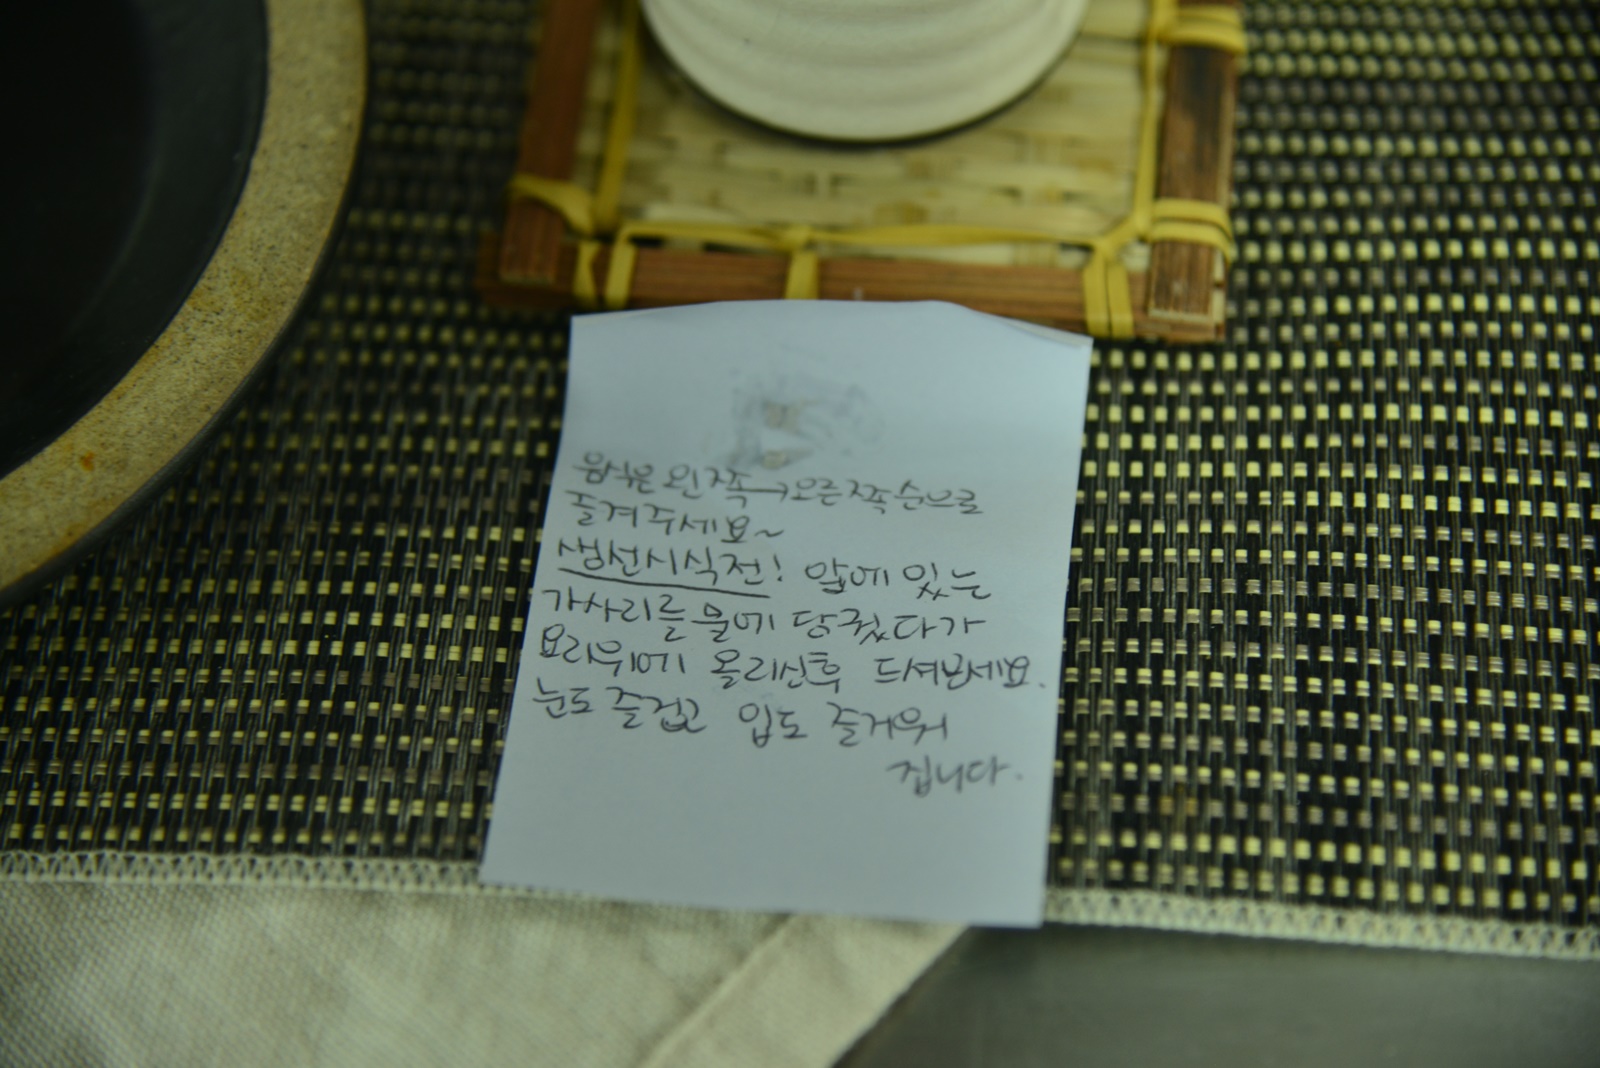 음식은 왼쪽→오른쪽 순으로
즐겨주세요~
생선시식전! 앞에 있는
가사리를 물에 당궜다가
요리위에 올리신후 드셔보세요.
눈도 즐겁고 입도 즐거워
집니다.